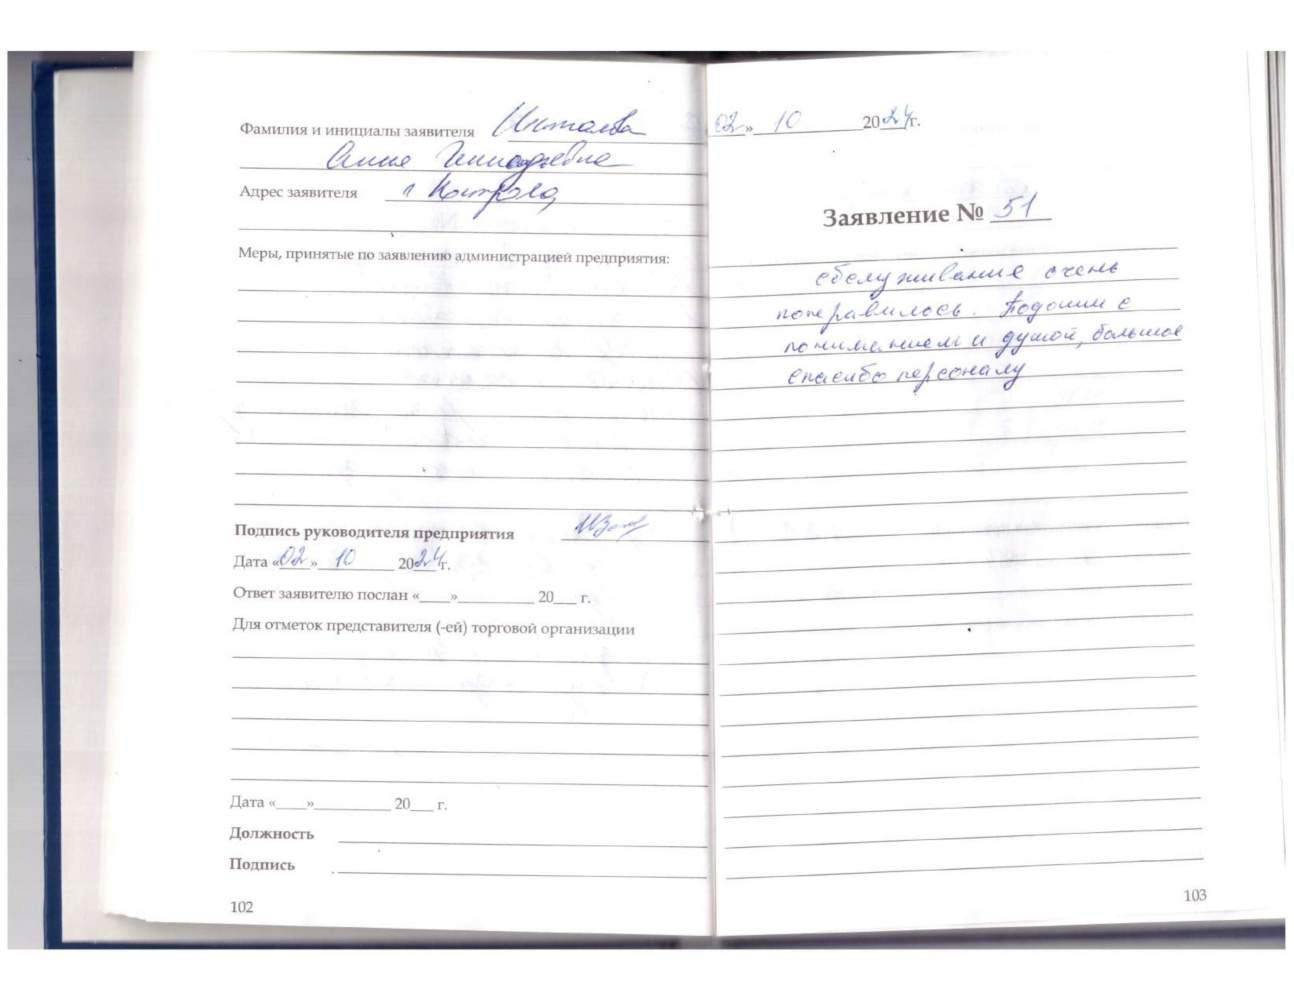 Фамилия и инициалы заявителя
Анна Геннадьевна
Адрес заявителя г Кострома
Меры, принятые по заявлению администрацией предприятия:
Подпись руководителя предприятия
Дата «02» 10 2024 г.
Ответ заявителю послан «___»__________ 20___ г.
Для отметок представителя (-ей) торговой организации
Дата «____»__________ 20___ г.
Должность
Подпись
102
02» 10 2024г.
Заявление № 51
обслуживание очень
понравилось. Подошли с
пониманием и душой, большое
спасибо персоналу
103